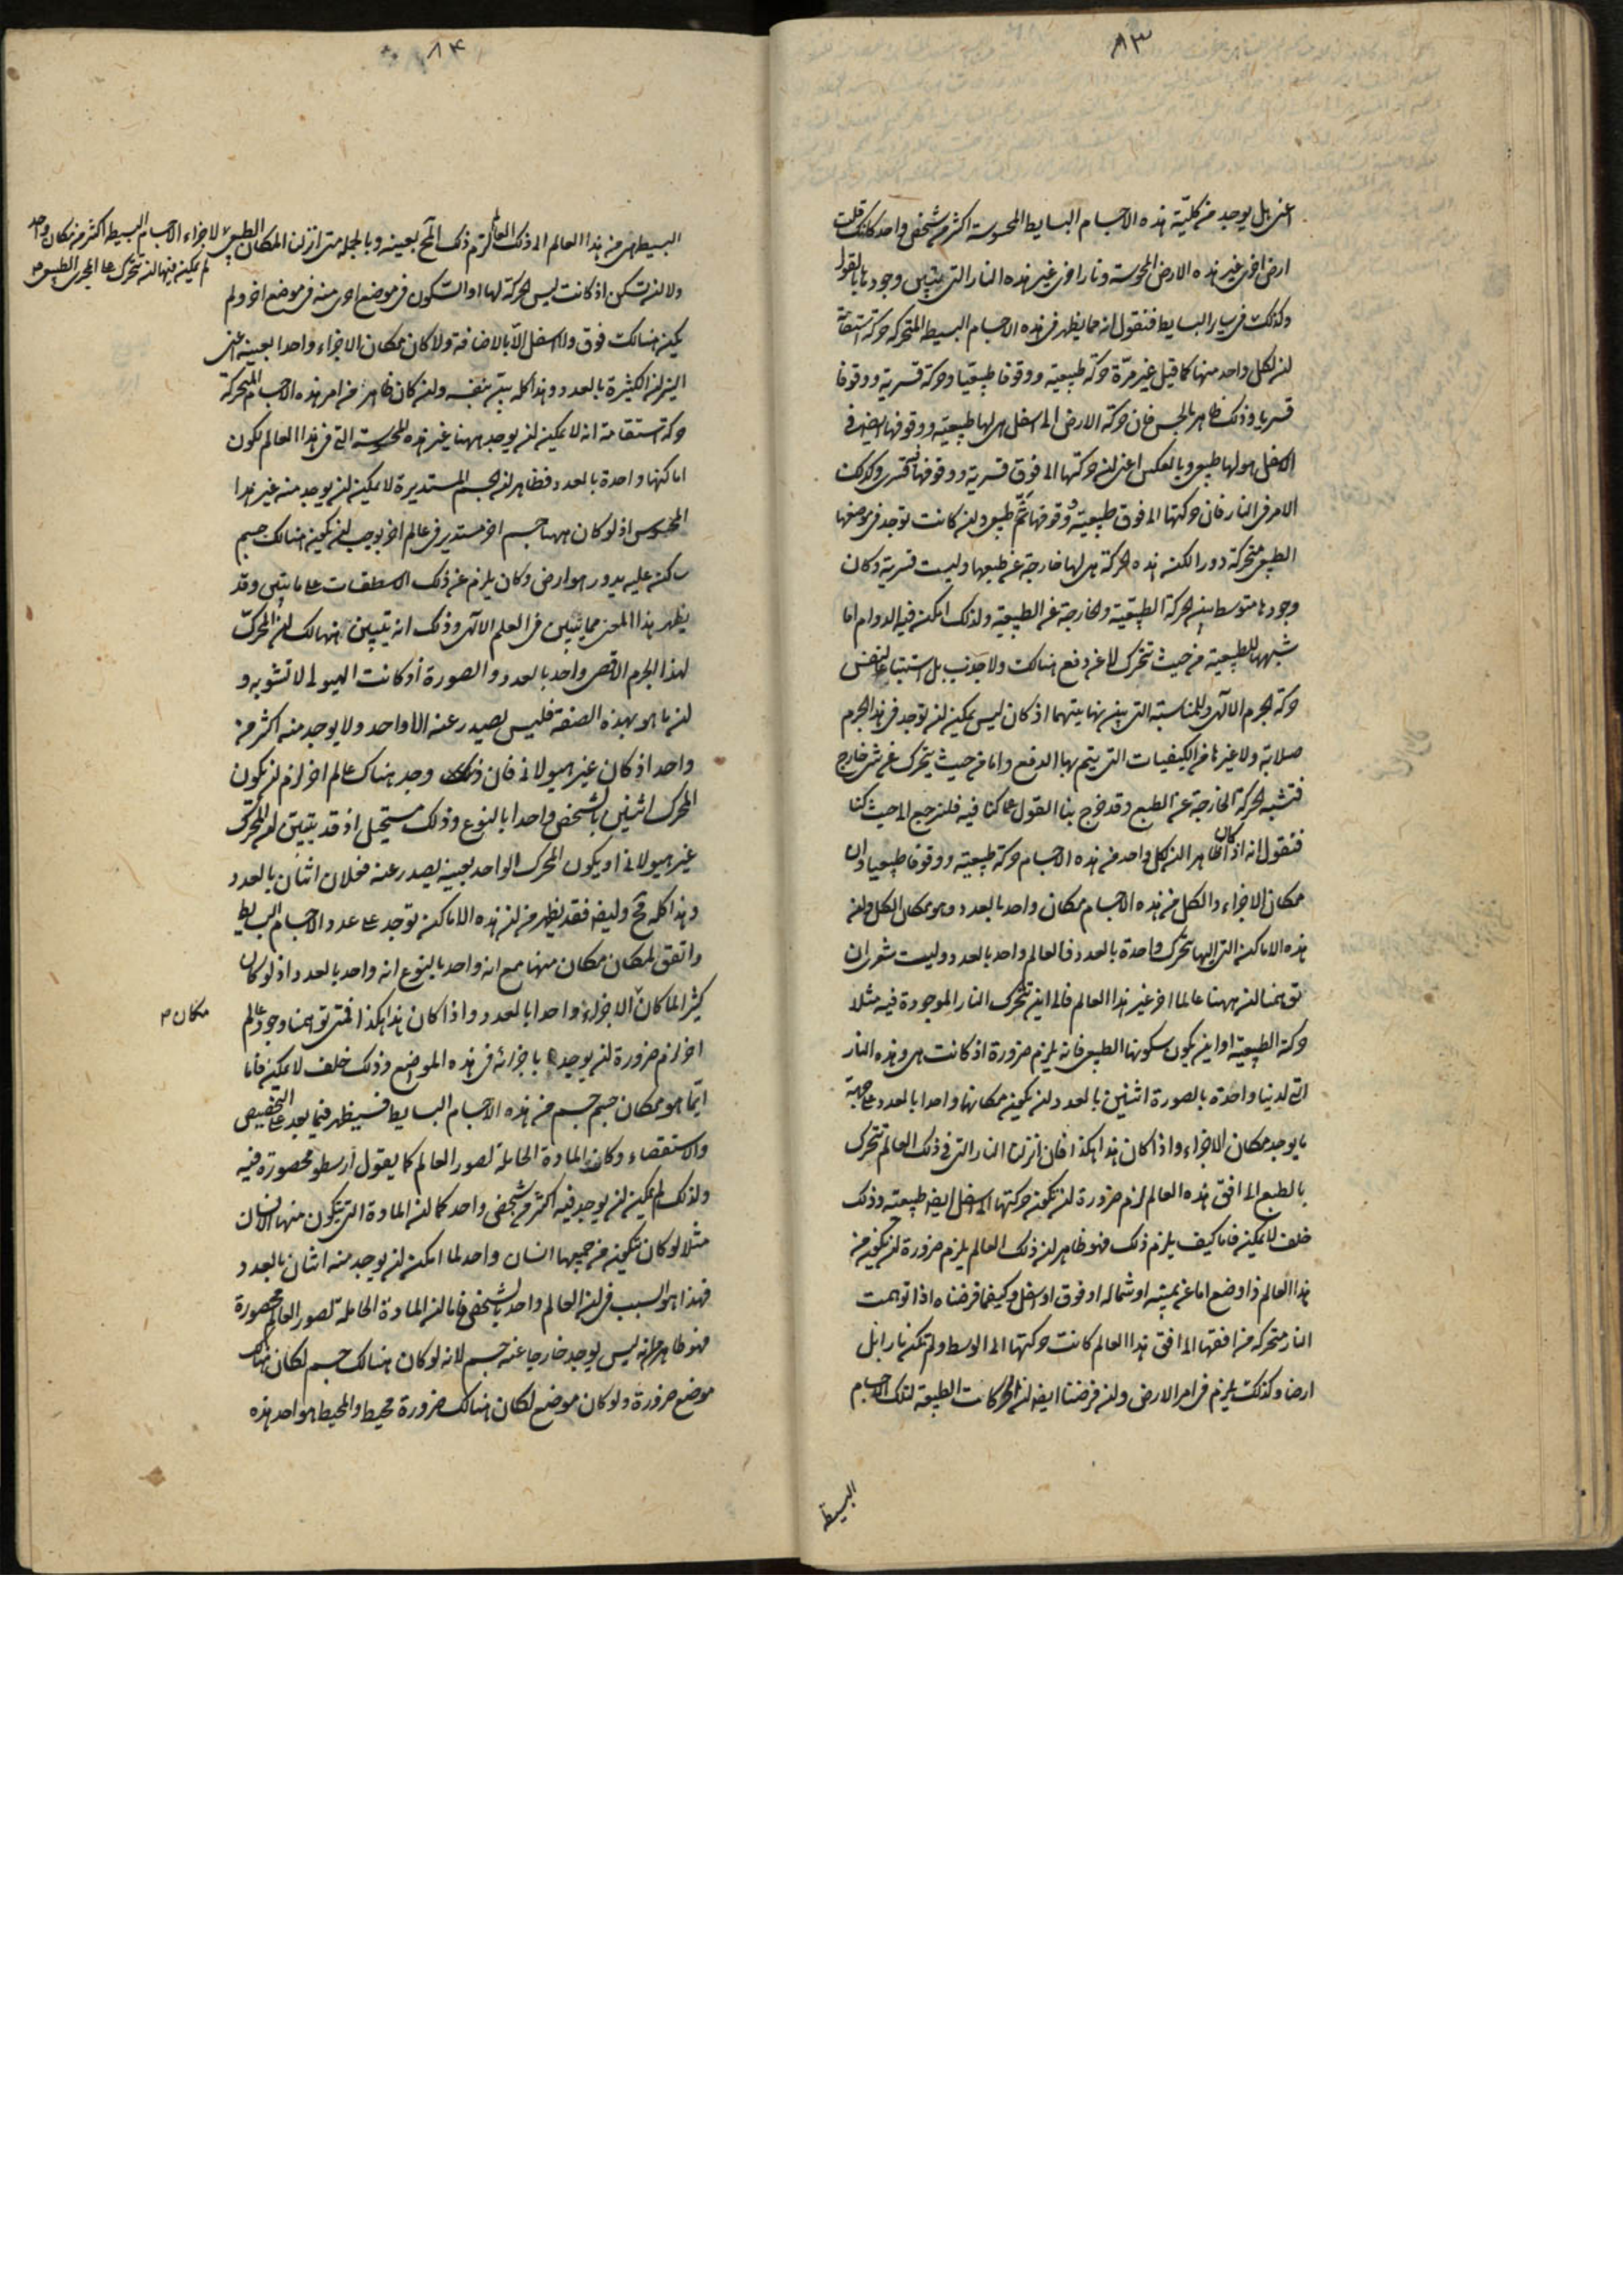 ٨٣
اعنى هل يوجد من كلية هذه الاجسام البسايط المحسوسة اكثر من شخص واحد كانك قلت
ارض اخرى غير هذه الارض المحسوسة ونار اخرى غير هذه النار التى يتبين وجودها بالقول
وكذلك فى ساير البسايط فنقول انه مما يظهر فى هذه الاجسام البسيطة المتحركة حركة استقامة
ان لكل واحد منها كما قيل غير مرة حركة طبيعية ووقوفا طبيعيا وحركة قسرية ووقوفا
قسريا وذلك ظاهر بالحس فان حركة الارض الى اسفل هى لها طبيعية ووقوفها ايضا فى
الاسفل هو لها طبيعى وبالعكس اعنى ان حركتها الى فوق قسرية ووقوفها فيه قسرى وكذلك
الامر فى النار فان حركتها الى فوق طبيعية ووقوفها ثم طبيعى وان كانت توجد فى موضعها
الطبيعى متحركة دورا لكن هذه الحركة هى لها خارجة عن طبعها وليست قسرية وكان
وجودها متوسط بين الحركة الطبيعية والخارجة عن الطبيعية ولذلك امكن فيه الدوام اما
شبهها للطبيعية من حيث تتحرك لا عن دفع هنالك ولا جذب بل استتباعا لنفس
حركة الجرم الالهى وللمناسبة التى بين نهايتيهما اذ كان ليس يمكن ان توجد فى هذا الجرم
صلابة ولا غيرها من الكيفيات التى يتم بها الدفع واما من حيث يتحرك عن شىء خارج
فتشبه الحركة الخارجة عن الطبع وقد خرج بنا القول عما كنا فيه فلنرجع الى حيث كنا
فنقول انه اذا كان ظاهرا ان لكل واحد من هذه الاجسام حركة طبيعية ووقوفا طبيعيا وان
مكان الاجزاء والكل من هذه الاجسام مكان واحد بالعدد وهو مكان الكل وان
هذه الاماكن التى اليها تتحرك واحدة بالعدد فالعالم واحد بالعدد وليت شعرى ان
توهمنا ان ههنا عالما اخر غير هذا العالم فالى اين تتحرك النار الموجودة فيه مثلا
حركة الطبيعية او اين يكون سكونها الطبيعى فانه يلزم ضرورة اذ كانت هى وهذه النار
التى لدينا واحدة بالصورة اثنين بالعدد ان يكون مكانهما واحدا بالعدد على جهة
ما يوجد مكان الاجزاء واذا كان هذا هكذا فان انزلنا النار التى فى ذلك العالم تتحرك
بالطبع الى افق هذه العالم لزم ضرورة ان تكون حركتها الى اسفل ايضا طبيعية وذلك
خلف لا يمكن فاما كيف يلزم ذلك فهو ظاهر ان ذلك العالم يلزم ضرورة ان يكون من
هذا العالم ذا وضع اما عن يمينه او شماله او فوق او اسفل وكيفما فرضناه اذا توهمت
النار متحركة من افقها الى افق هذا العالم كانت حركتها الى الوسط ولم تكن نارا بل
ارضا وكذلك يلزم فى امر الارض وان فرضنا ايضا ان الحركات الطبيعية لتلك الاجسام
البسيطة
٨٤
البسيطة هى من هذا العالم الى ذلك العالم لزم ذلك المح بعينه وبالجملة متى انزلنا المكان الطبيعى لاجزاء الاجسام البسيطة اكثر من مكان واحد
لم يمكن فيها ان تتحرك على المجرى الطبيعى
ولا ان تسكن اذ كانت ليس الحركة لها او السكون فى موضع احرى منه فى موضع اخر ولم
يكن هنالك فوق ولا اسفل الا بالاضافة ولا كان مكان الاجزاء واحدا بعينه اعنى
النيران الكثيرة بالعدد وهذا كله بين بنفسه وان كان ظاهرا من امر هذه الاجسام المتحركة
حركة استقامة انه لا يمكن ان يوجد ههنا غير هذه المحسوسة التى فى هذا العالم لكون
اماكنها واحدة بالعدد فظاهر ان الجسم المستديرة لا يمكن ان يوجد منه غير هذا
المحسوس اذ لو كان ههنا جسم اخر مستدير فى عالم اخر يوجب ان يكون هنالك جسم
ساكن عليه يدور هو ارض وكان يلزم عن ذلك الاسطقسات على ما يتبين وقد
يظهر هذا المعنى مما يتبين فى العلم الالهى وذلك انه يتبين هنالك ان المحرك
لهذا الجرم الاقصى واحد بالعدد والصورة اذ كانت الهيولى لا تشوبه و
ان ما هو بهذه الصفة فليس يصدر عنه الا واحد ولا يوجد منه اكثر من
واحد اذ كان غير هيولانى فان وجد هناك عالم اخر لزم ان يكون
المحرك اثنين بالشخص واحدا بالنوع وذلك مستحيل اذ قد يتبين ان المحرك
غير هيولانى او يكون المحرك الواحد بعينه يصدر عنه فعلان اثنان بالعدد
وهذا كله مح وايضا فقد يظهر من ان هذه الاماكن توجد على عدد الاجسام البسايط
واتفق لمكان مكان منها مع انه واحد بالنوع انه واحد بالعدد اذ لو كان
كثيرا لما كان مكان الاجزاء واحدا بالعدد واذا كان هذا هكذا فمتى توهمنا وجود عالم
اخر لزم ضرورة ان يوجد باجزائه فى هذه المواضع وذلك خلف لا يمكن فاما
ايما هو مكان جسم جسم من هذه الاجسام البسايط فسيظهر فيما بعد على التخصيص
والاستقصاء وكان المادة الحاملة لصور العالم كما يقول ارسطو محصورة فيه
ولذلك لم يمكن ان يوجد فيه اكثر من شخص واحد كما ان المادة التى يتكون منها الانسان
مثلا لو كان تكون من جميعها انسان واحد لما امكن ان يوجد منه اثنان بالعدد
فهذا هو السبب فى ان العالم واحد بالشخص فاما ان المادة الحاملة لصور العالم محصورة
فهو ظاهر انه ليس يوجد خارجا عنه جسم لانه لو كان هنالك جسم لكان هناك
موضع ضرورة ولو كان موضع لكان هنالك ضرورة محيط والمحيط هو احد هذه